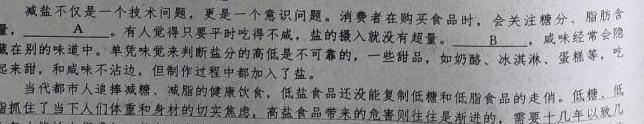 减盐不仅是一个技术问题，更是一个意识问题。消费者在购买食品时，会关注糖分、脂肪含
量，A。有人觉得只要平时吃得不咸，盐的摄入就没有超量。B，咸味经常会隐
藏在别的味道中。单凭味觉来判断盐分的高低是不可靠的，一些甜品，如奶酪、冰淇淋、蛋糕等，吃
起来甜，和咸味不沾边，但制作过程中都加入了盐。
当代都市人追捧减糖、减脂的健康饮食，低盐食品还没能复制低糖和低脂食品的走俏。低糖、低
脂抓住了当下人们体重和身材的切实焦虑，高盐食品带来的危害则往往是渐进的，需要十几年以致几